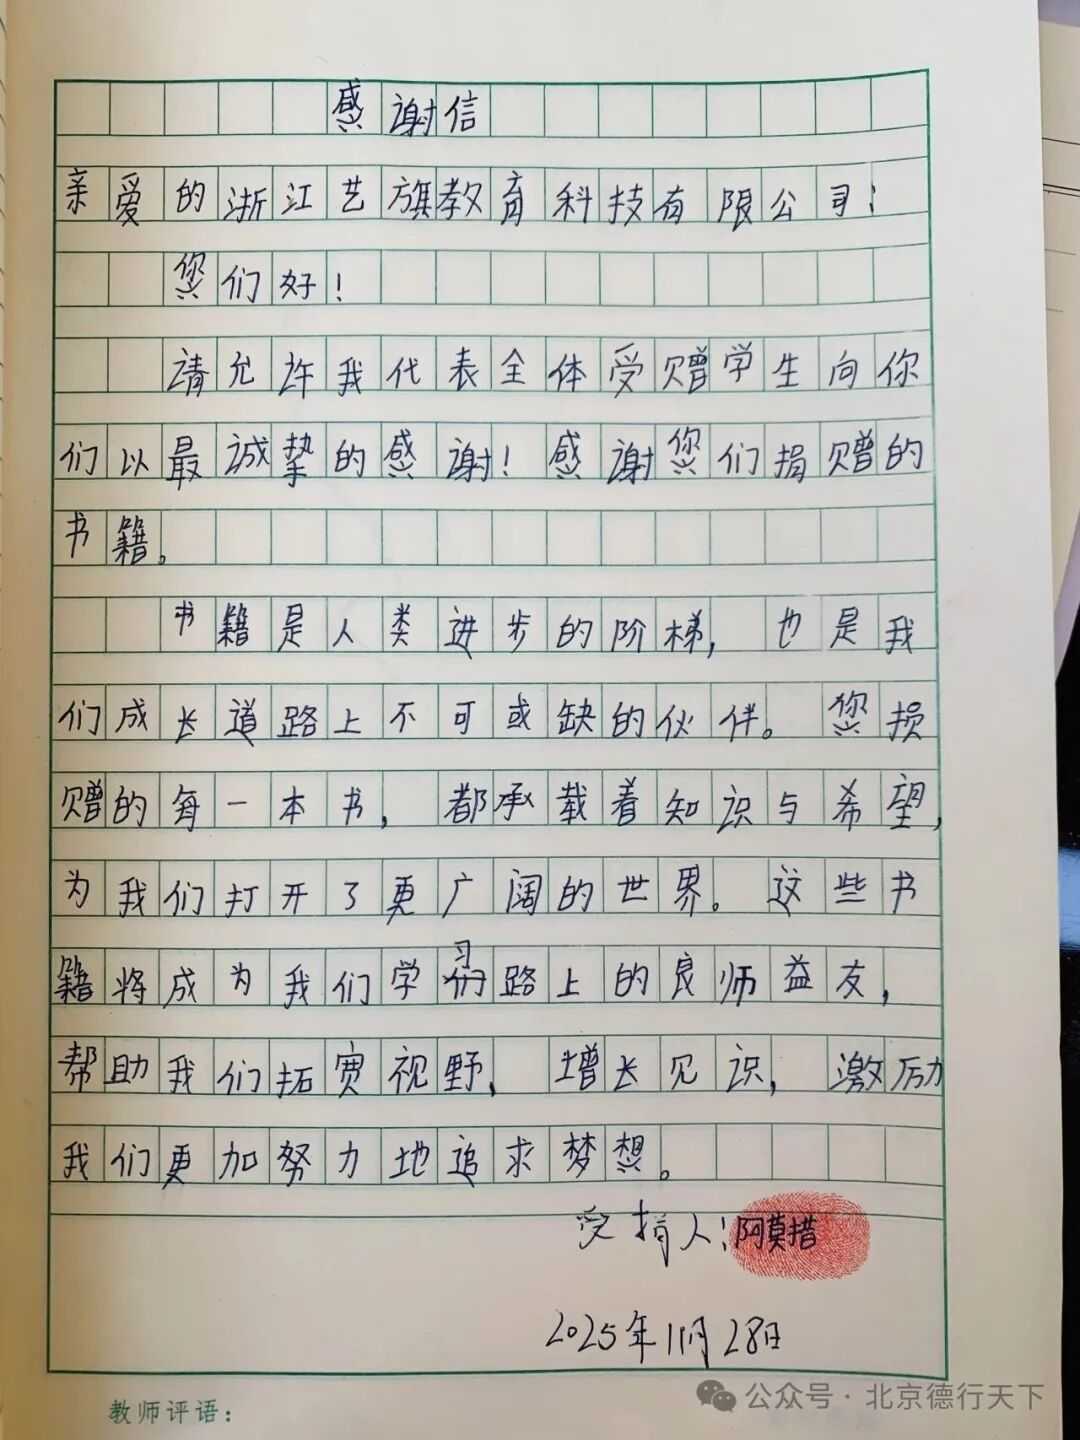 感谢信
亲爱的浙江艺旗教育科技有限公司：
您们好！
请允许我代表全体受赠学生向你
们以最诚挚的感谢！感谢您们捐赠的
书籍。
书籍是人类进步的阶梯，也是我
们成长道路上不可或缺的伙伴。您损
赠的每一本书，都承载着知识与希望，
为我们打开了更广阔的世界。这些书
籍将成为我们学习路上的良师益友，
帮助我们拓宽视野，增长见识，激励
我们更加努力地追求梦想。
受捐人：阿莫措
2025年11月28日
教师评语：
公众号·北京德行天下